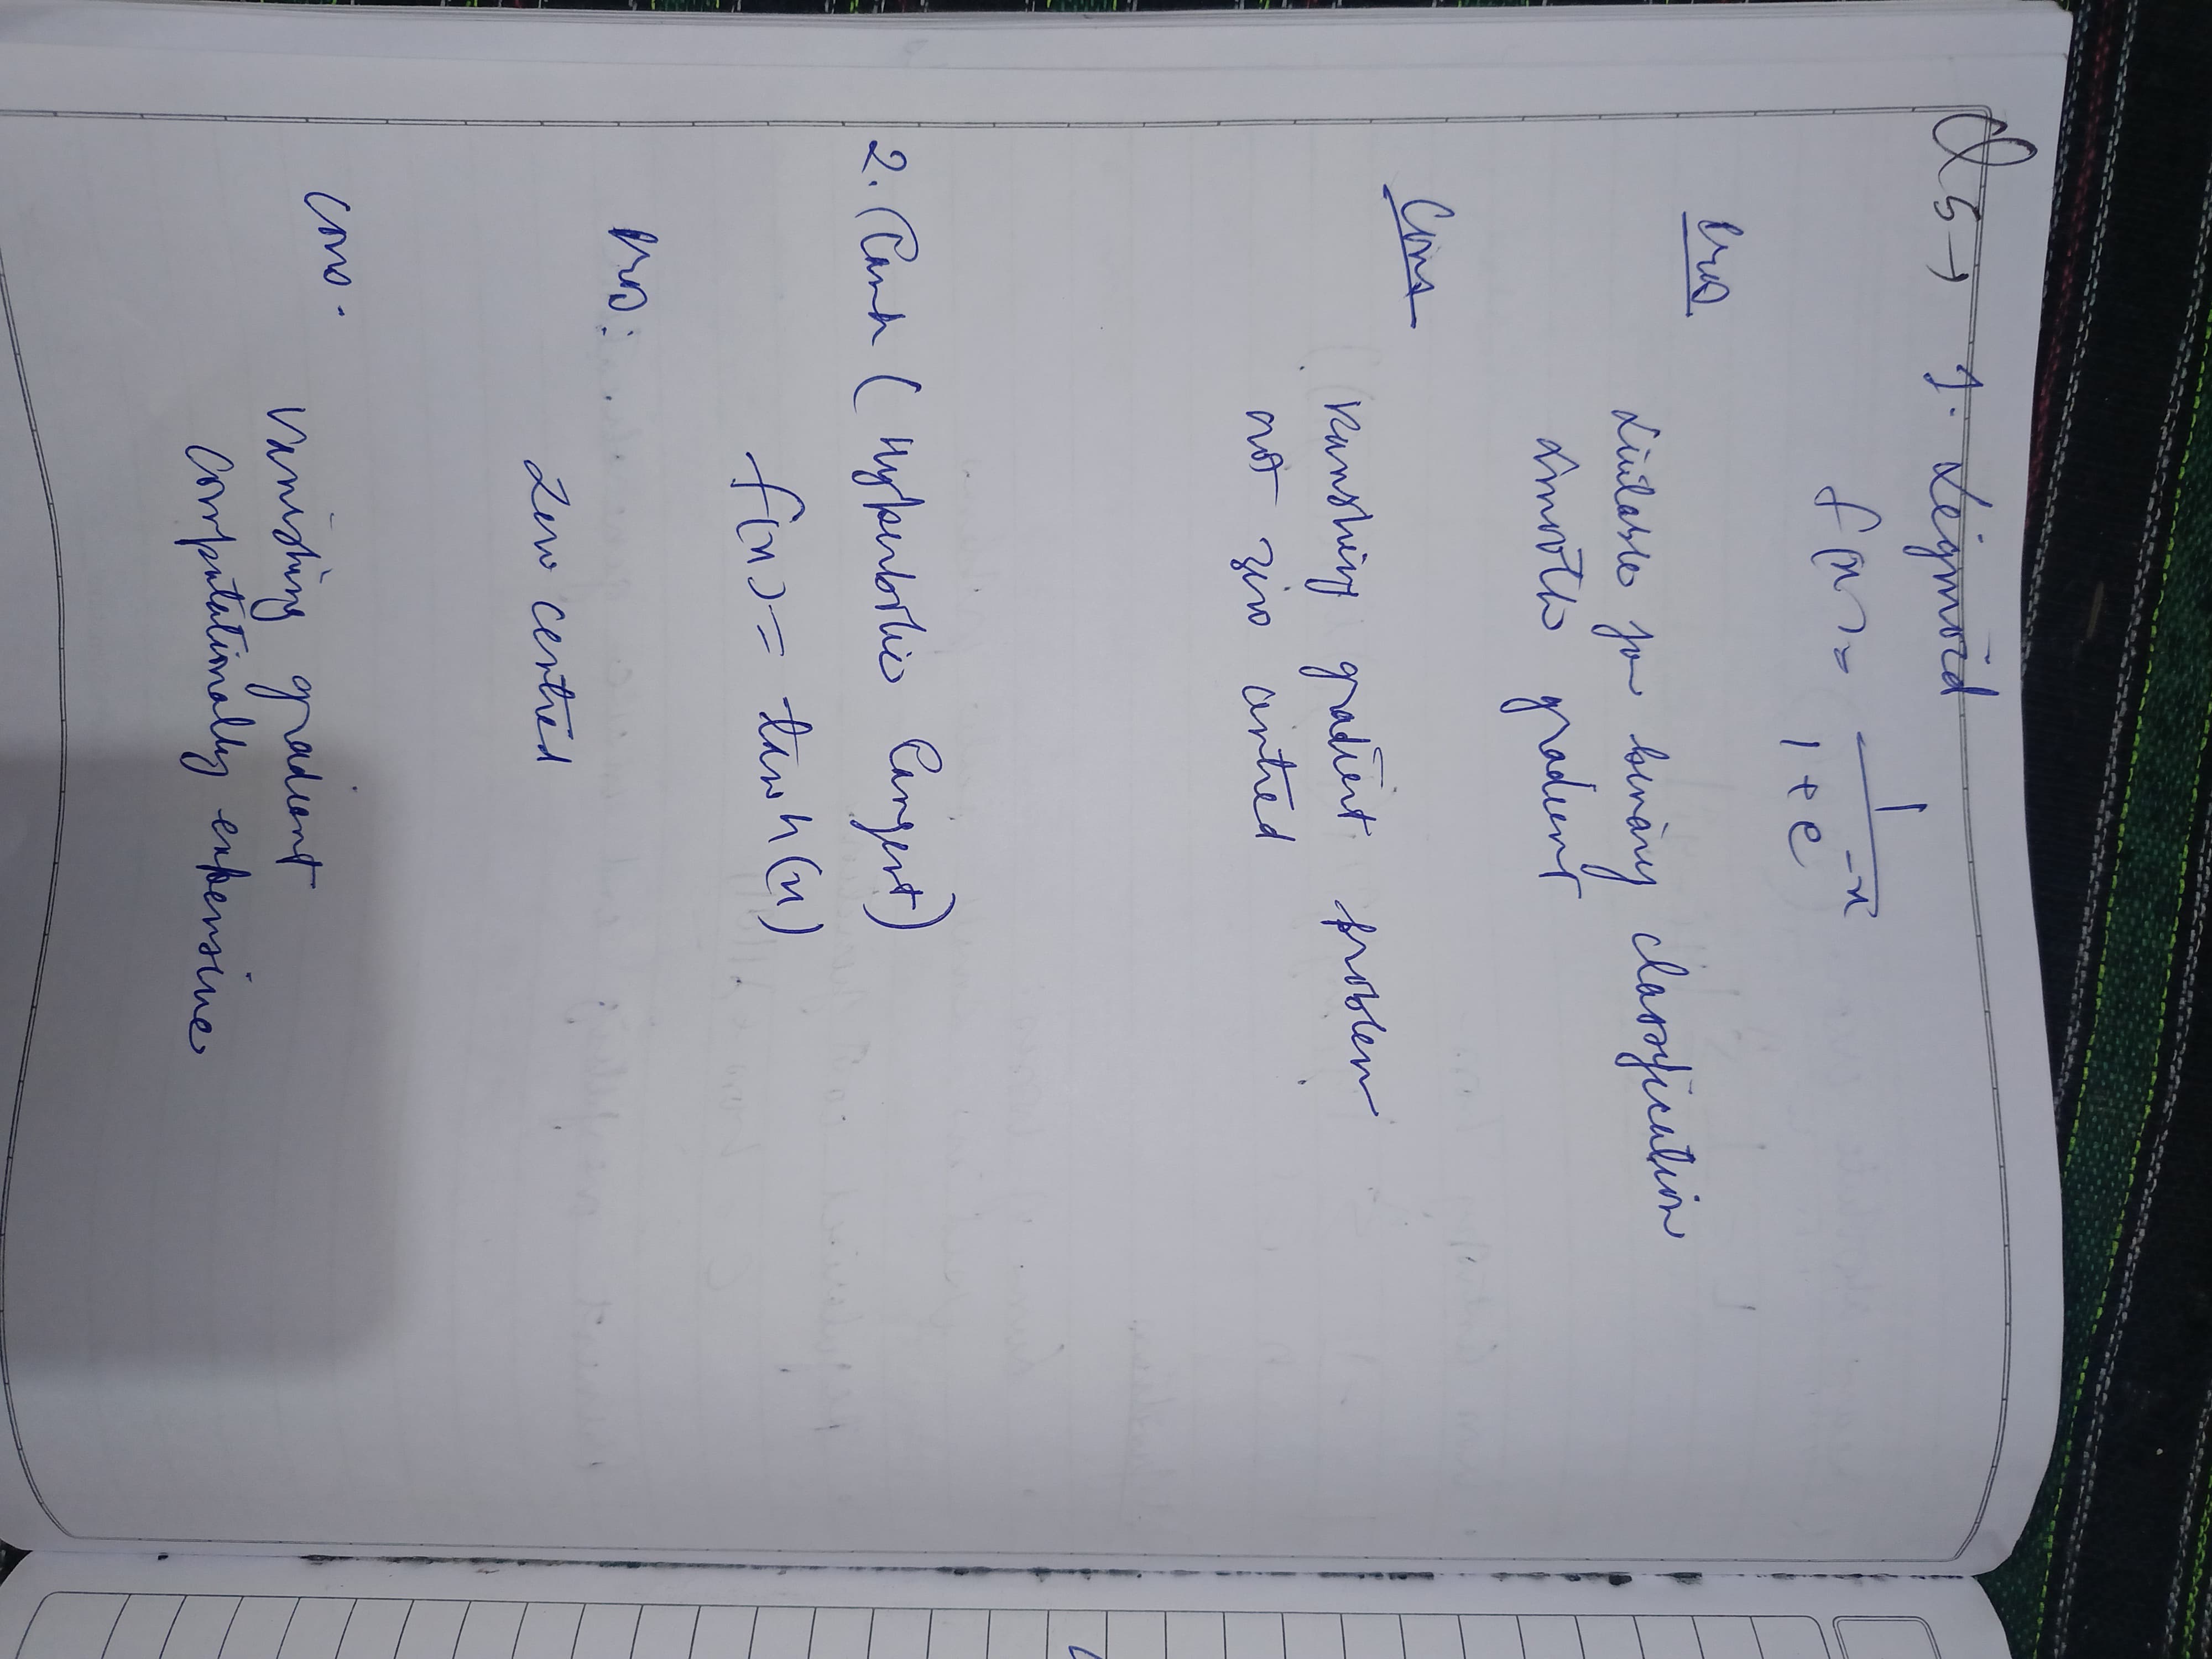 Q5→ 1. Sigmoid
f(x) = 1 / (1+e^-x)
Pros
Suitable for binary classification
Smooth gradient
Cons
Vanshing gradient problem
not zero centred
2. Tanh (Hyperbolic Tangent)
f(x) = tanh(x)
Pros:
Zero centred
Cons.
Vanishing gradient
Computationally expensive